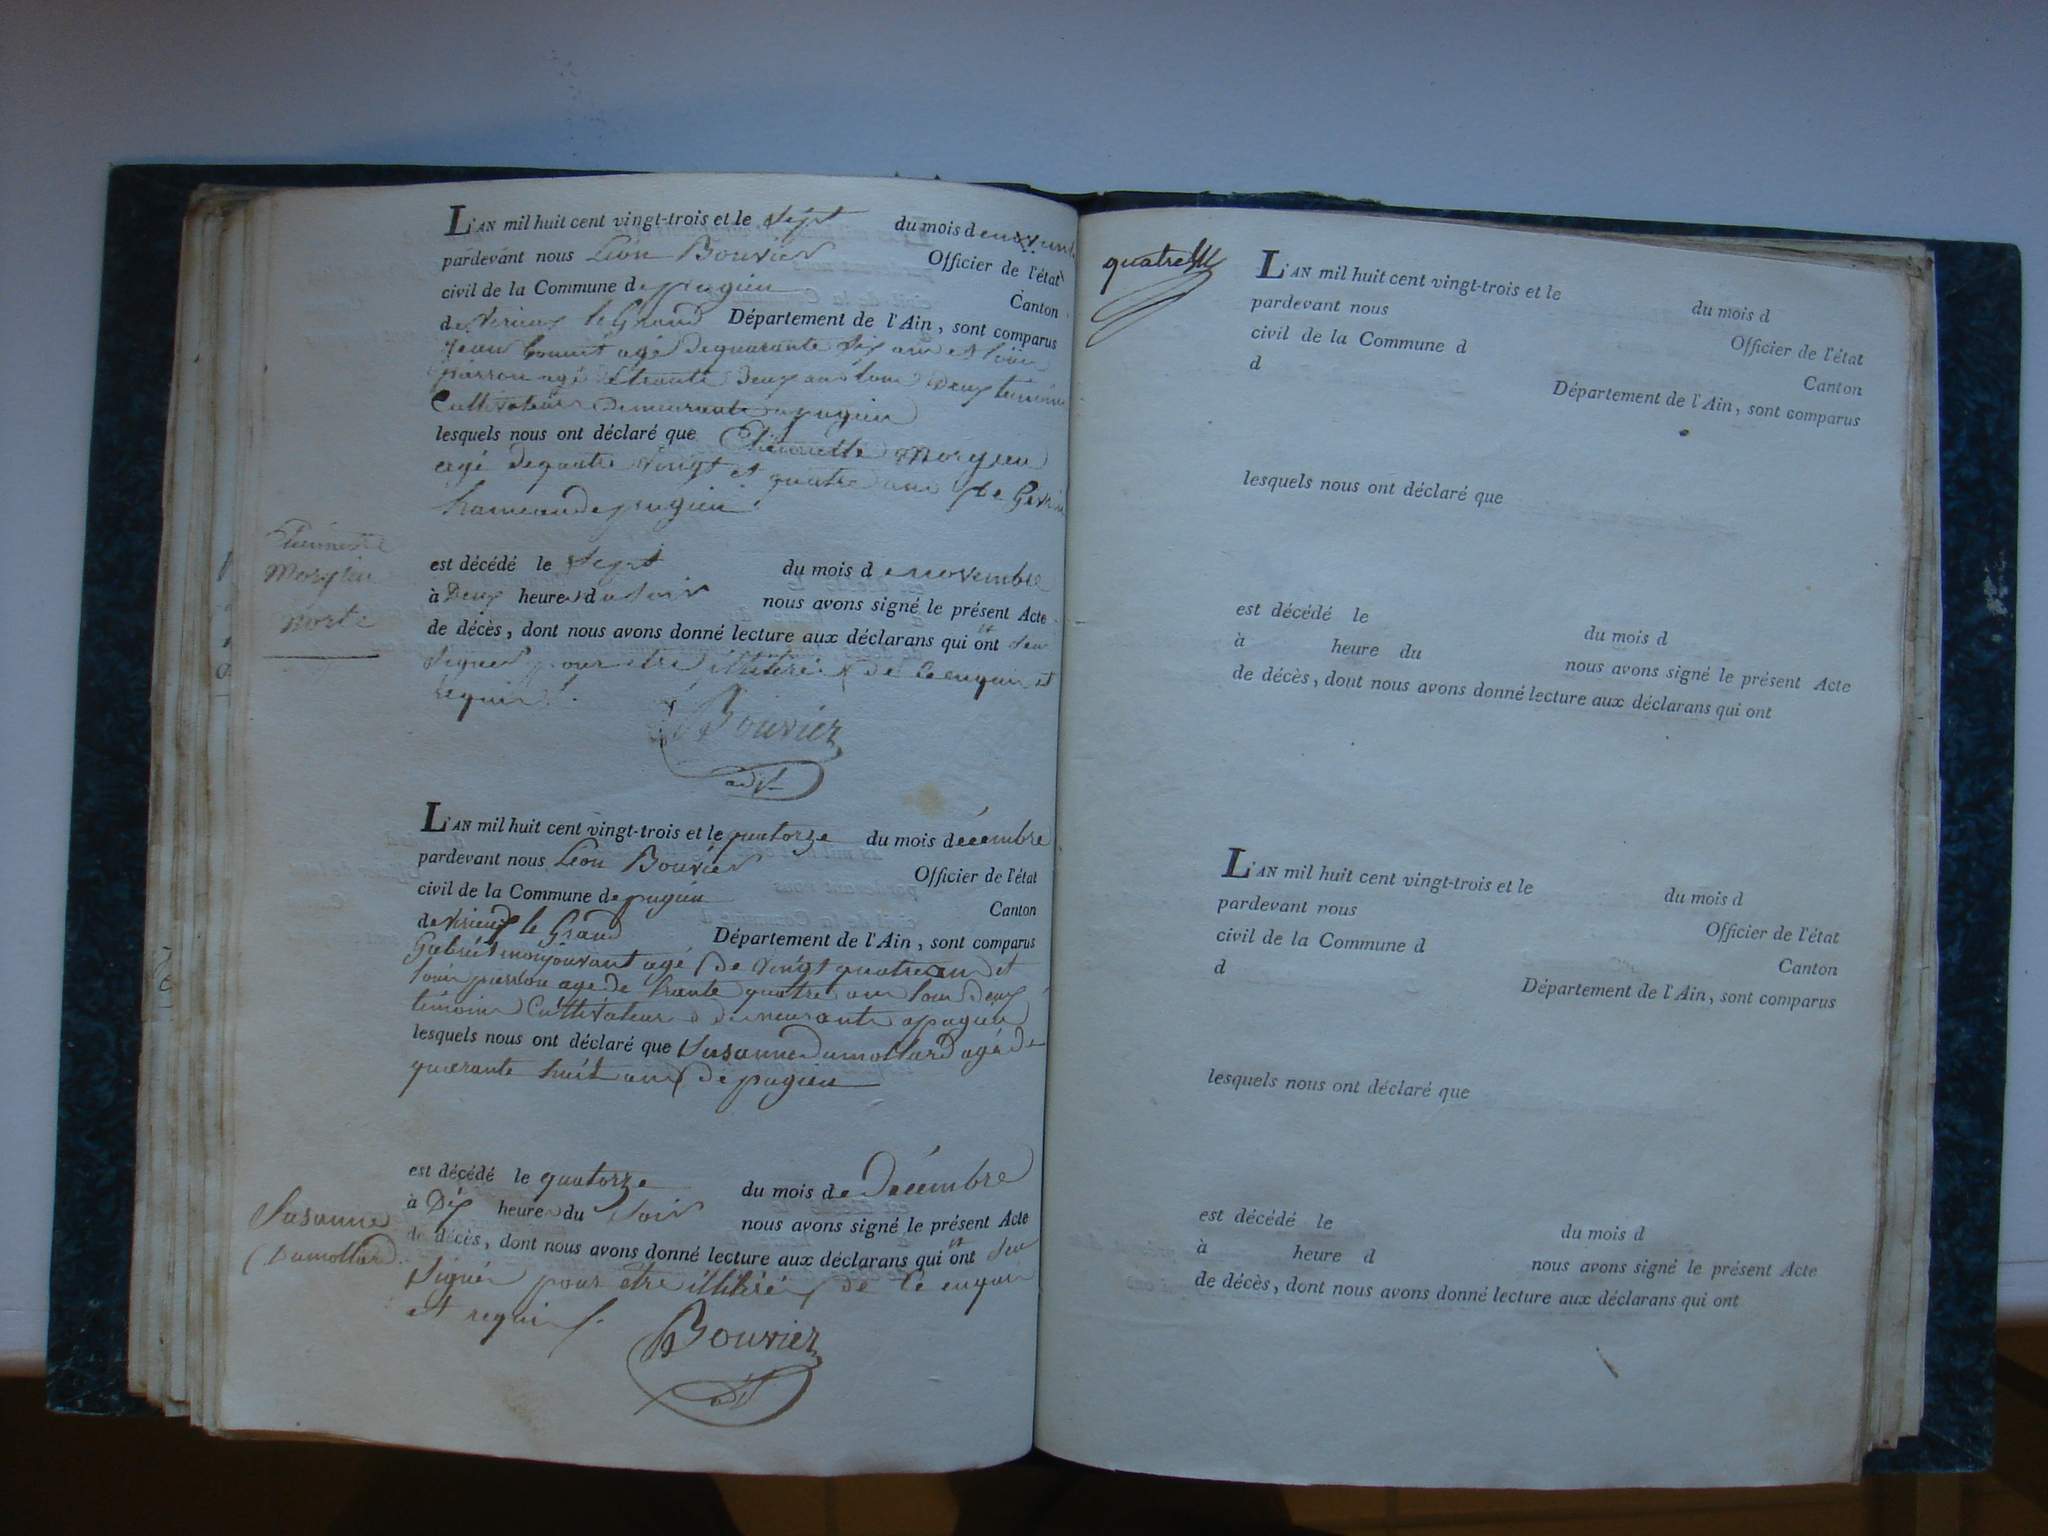 L'AN mil huit cent vingt-trois et le Sept du mois de
pardevant nous Léon Bouvier Officier de l'état
civil de la Commune de pugieu Canton
de Virieux le Grand Département de l'Ain, sont comparus
Jean agé de quarante six ans et
agé de trante Deux ans tous Deux témoins
Cultivateurs Demeurants a pugieu
lesquels nous ont déclaré que
agé de quatre vingt et quatre ans
hameau de pugieu
est décédé le Sept du mois de novembre
à Deux heures du Soir nous avons signé le présent Acte
de décès, dont nous avons donné lecture aux déclarans qui ont
Signer pour etre de ce enquis et
requis.
Bouvier
adjt
morte
L'AN mil huit cent vingt-trois et le quatorze du mois décembre
pardevant nous Léon Bouvier Officier de l'état
civil de la Commune de pugieu Canton
de Virieux le Grand Département de l'Ain, sont comparus
Gabriel agé de vingt quatre ans et
agé de trante quatre ans tous Deux
témoins Cultivateurs demeurants a pugieu
lesquels nous ont déclaré que Susanne Dumollard agé de
quarante huit ans de pugieu
est décédé le quatorze du mois de Décembre
à Dix heures du Soir nous avons signé le présent Acte
de décès, dont nous avons donné lecture aux déclarans qui ont
Signer pour etre de ce enquis
et requis.
Bouvier
adjt
Susanne
Dumollard
L'AN mil huit cent vingt-trois et le du mois d
pardevant nous Officier de l'état
civil de la Commune d Canton
d Département de l'Ain, sont comparus
lesquels nous ont déclaré que
est décédé le du mois d
à heure du nous avons signé le présent Acte
de décès, dont nous avons donné lecture aux déclarans qui ont
L'AN mil huit cent vingt-trois et le du mois d
pardevant nous Officier de l'état
civil de la Commune d Canton
d Département de l'Ain, sont comparus
lesquels nous ont déclaré que
est décédé le du mois d
à heure d nous avons signé le présent Acte
de décès, dont nous avons donné lecture aux déclarans qui ont